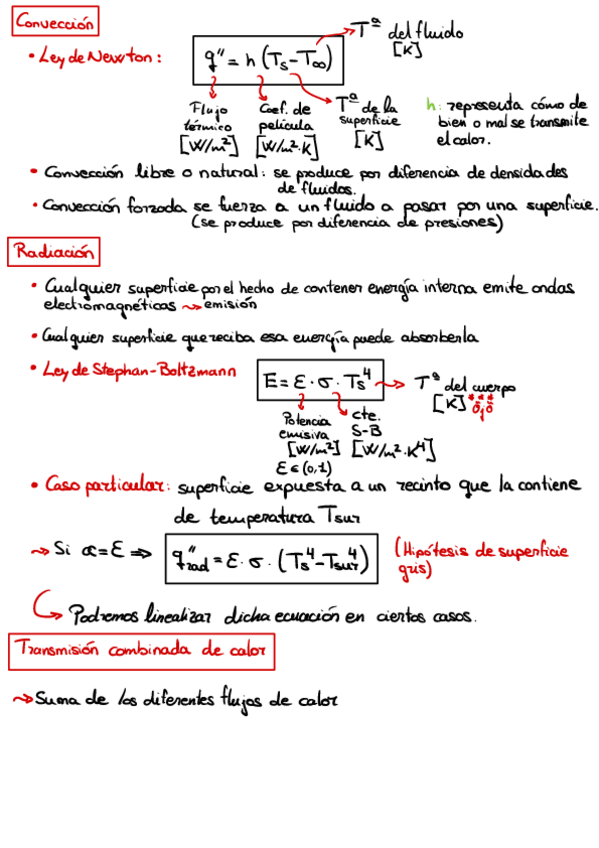 Convección
• Ley de Newton:
q" = h (Ts - T∞)
Tª del fluido
[K]
Flujo
térmico
[W/m²]
Coef. de
película
[W/m²·K]
Tª de la
superficie
[K]
h: representa cómo de
bien o mal se transmite
el calor.
• Convección libre o natural: se produce por diferencia de densidades
de fluidos.
• Convección forzada se fuerza a un fluido a pasar por una superficie.
(se produce por diferencia de presiones)
Radiación
• Cualquier superficie por el hecho de contener energía interna emite ondas
electromagnéticas ⇝ emisión
• Cualquier superficie que reciba esa energía puede absorberla
• Ley de Stephan-Boltzmann
E = ε · σ · Ts⁴
Tª del cuerpo
[K] *** ojo
Potencia
emisiva
[W/m²]
ε ∈ (0,1)
cte.
S-B
[W/m²·K⁴]
• Caso particular: superficie expuesta a un recinto que la contiene
de temperatura Tsur
⇝ Si α = ε ⇒ q"rad = ε · σ · (Ts⁴ - Tsur⁴) (Hipótesis de superficie
gris)
Podremos linealizar dicha ecuación en ciertos casos.
Transmisión combinada de calor
⇝ Suma de los diferentes flujos de calor